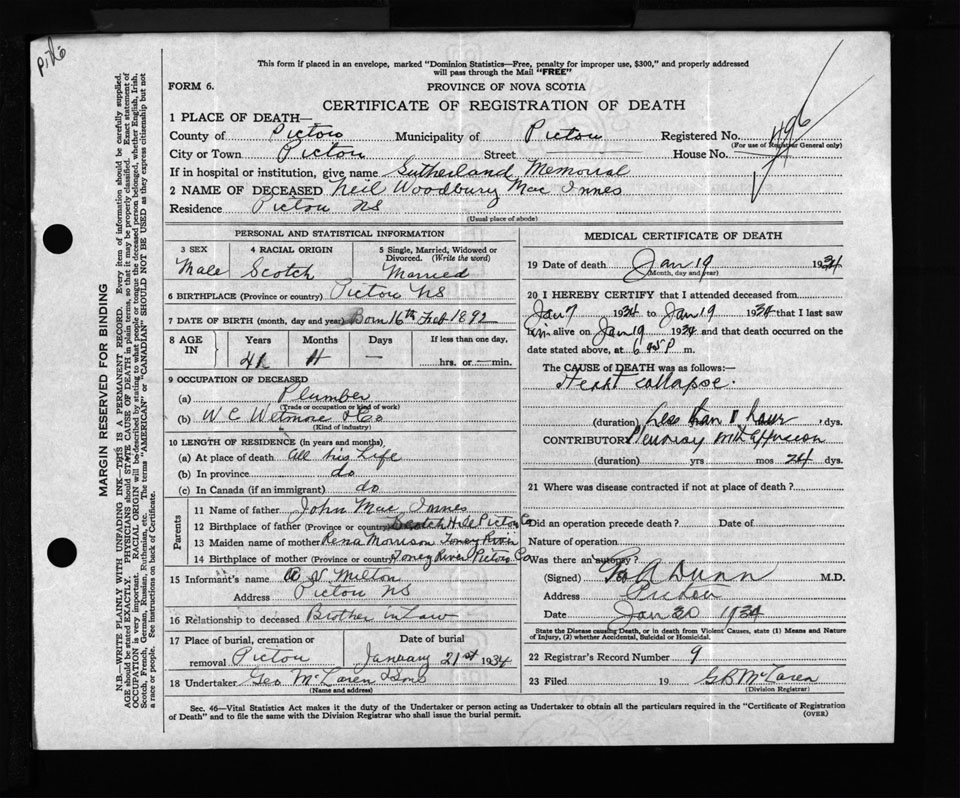 This form if placed in an envelope, marked "Dominion Statistics—Free, penalty for improper use, $300," and properly addressed
will pass through the Mail "FREE"
FORM 6.
PROVINCE OF NOVA SCOTIA
CERTIFICATE OF REGISTRATION OF DEATH
1 PLACE OF DEATH—
County of Pictou Municipality of Pictou Registered No. 496
(For use of Registrar General only)
City or Town Pictou Street House No.
If in hospital or institution, give name Sutherland Memorial
2 NAME OF DECEASED Neil Woodbury Mac Innes
Residence Pictou NS
(Usual place of abode)
PERSONAL AND STATISTICAL INFORMATION
3 SEX 4 RACIAL ORIGIN 5 Single, Married, Widowed or
Divorced. (Write the word)
Male Scotch Married
6 BIRTHPLACE (Province or country) Pictou NS
7 DATE OF BIRTH (month, day and year) Born 16th Feb 1892
8 AGE IN Years Months Days If less than one day,
41 11 — hrs. or min.
9 OCCUPATION OF DECEASED
(a) Plumber
(Trade or occupation or kind of work)
(b) W C Wetmore & Co
(Kind of industry)
10 LENGTH OF RESIDENCE (in years and months)
(a) At place of death all his Life
(b) In province do
(c) In Canada (if an immigrant) do
Parents
11 Name of father John Mac Innes
12 Birthplace of father (Province or country) Scotch Hill Pictou Co
13 Maiden name of mother Rena Morrison Toney River
14 Birthplace of mother (Province or country) Toney River Pictou Co
15 Informant's name Milton
Address Pictou NS
16 Relationship to deceased Brother in Law
17 Place of burial, cremation or Date of burial
removal Pictou January 21st 1934
18 Undertaker Geo McLaren & Sons
(Name and address)
MEDICAL CERTIFICATE OF DEATH
19 Date of death Jan 19 1934
(Month, day and year)
20 I HEREBY CERTIFY that I attended deceased from
Jan 7 1934 to Jan 19 1934 that I last saw
him alive on Jan 19 1934 and that death occurred on
date stated above, at 6 45 P m.
The CAUSE of DEATH was as follows:—
Heart collapse.
(duration) Less than 1 hour dys.
CONTRIBUTORY Pleurisy with effusion
(duration) yrs mos 24 dys.
21 Where was disease contracted if not at place of death?
Did an operation precede death? Date of
Nature of operation
Was there an autopsy?
(Signed) A Dunn M.D.
Address Pictou
Date Jan 20 1934
State the Disease causing Death, or in death from Violent Causes, state (1) Means and Nature
of Injury, (2) whether Accidental, Suicidal or Homicidal.
22 Registrar's Record Number 9
23 Filed 19 G B McLaren
(Division Registrar)
Sec. 46—Vital Statistics Act makes it the duty of the Undertaker or person acting as Undertaker to obtain all the particulars required in the "Certificate of Registration
of Death" and to file the same with the Division Registrar who shall issue the burial permit.
(OVER)
MARGIN RESERVED FOR BINDING
N.B.—WRITE PLAINLY WITH UNFADING INK—THIS IS A PERMANENT RECORD. Every item of information should be carefully supplied.
AGE should be stated EXACTLY. PHYSICIANS should STATE CAUSE OF DEATH in plain terms, so that it may be properly classified. Exact statement of
OCCUPATION is very important. RACIAL ORIGIN will be described by stating to what people or tongue the deceased person belonged, whether English, Irish,
Scotch, French, German, Russian, Ruthenian, etc. The terms "AMERICAN" or "CANADIAN" SHOULD NOT BE USED as they express citizenship but not
a race or people. See instructions on back of Certificate.